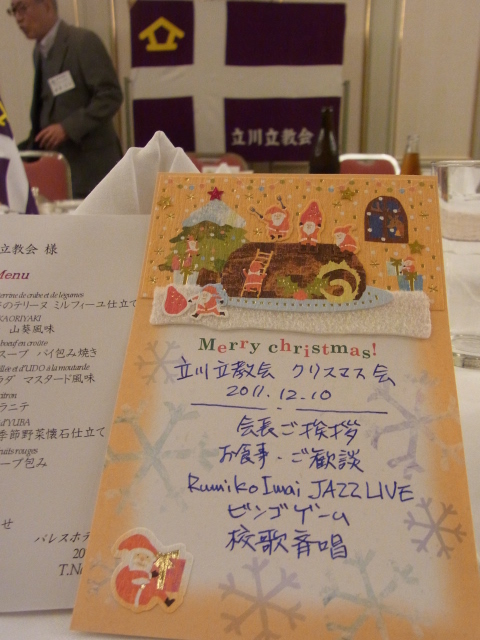 立川立教会
立教会 様
Menu
terrine de crabe et de légumes
のテリーヌ ミルフィーユ仕立て
KAORIYAKI
山葵風味
スープ パイ包み焼き
et d'UDO à la moutarde
ラダ マスタード風味
citron
ラニテ
d'YUBA
季節野菜懐石仕立て
fruits rouges
ープ包み
せ
パレスホテ
20
T.Na
Merry christmas!
立川立教会 クリスマス会
2011.12.10
会長ご挨拶
お食事・ご歓談
Rumiko Imai JAZZ LIVE
ビンゴゲーム
校歌斉唱